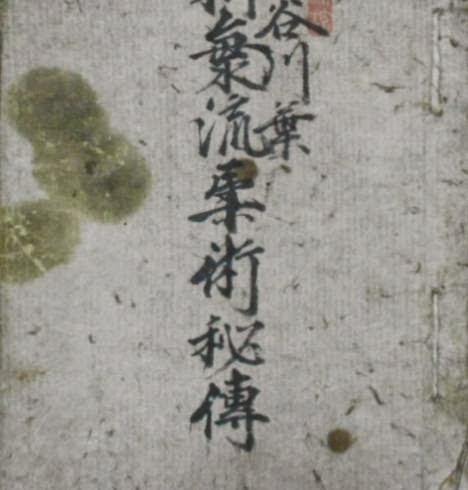 谷川葉
氣流柔術秘傳